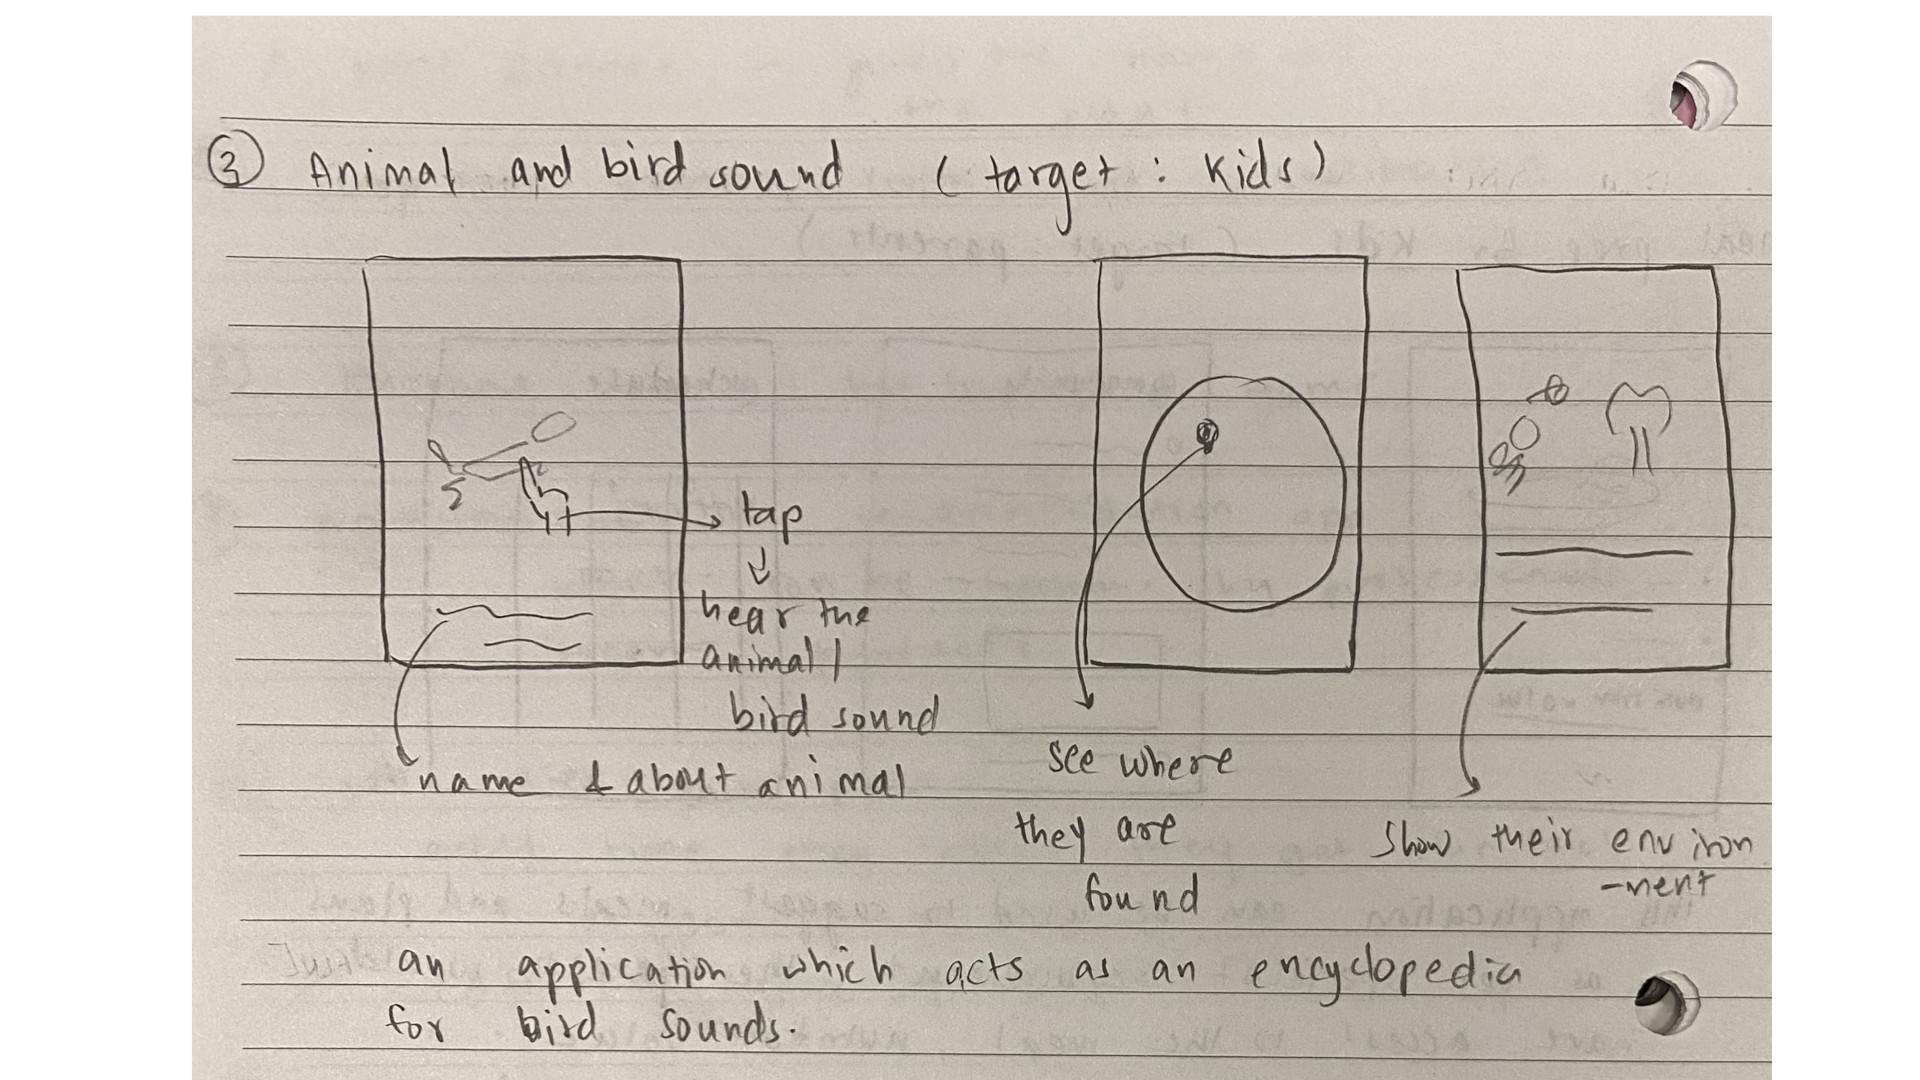 ③ Animal and bird sound (target: kids)
tap
hear the
animal/
bird sound
name & about animal
see where
they are
found
show their environ
-ment
an application which acts as an encyclopedia
for bird sounds.